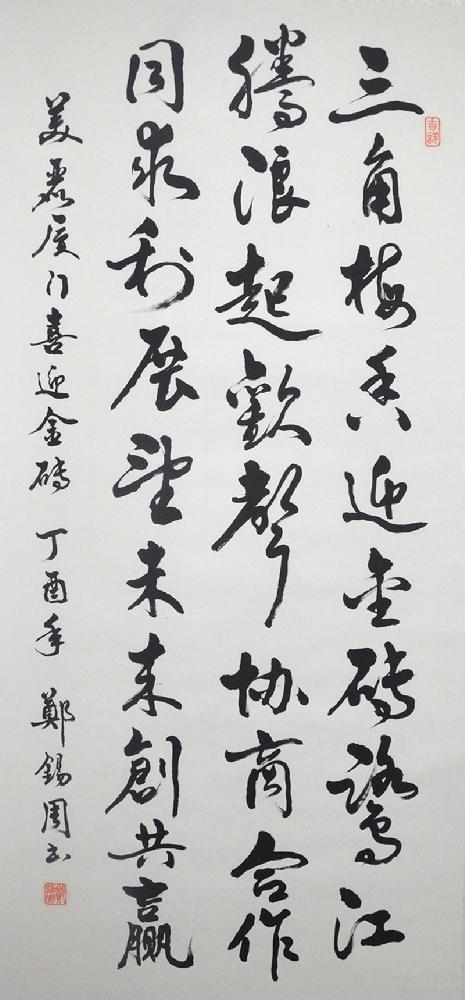 三角梅香迎金磚鷺江
騰浪起歡聲協商合作
同求利展望未来創共贏
美麗厦门喜迎金磚 丁酉年 鄭錫周书
吉祥